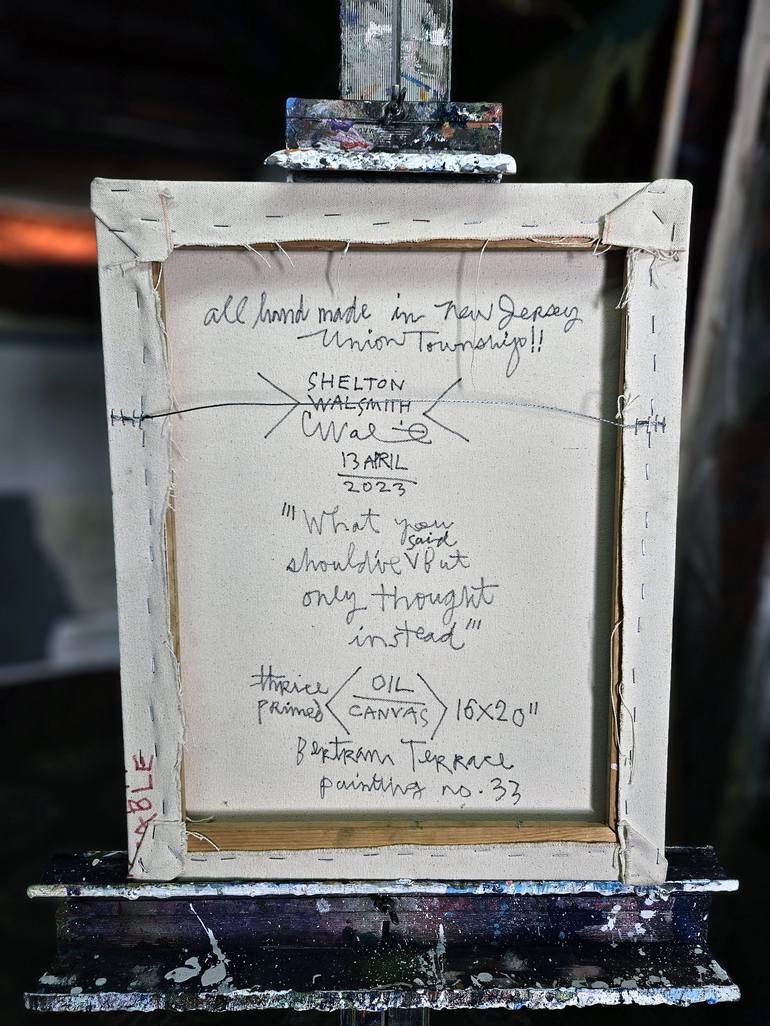 all hand made in new Jersey
Union Township!!
SHELTON
WALSMITH
13 APRIL
2023
"'What you
should've said But
only thought
instead'"
thrice
primed
OIL
CANVAS
16X20"
Bertram Terrace
painting no. 33
ABLE